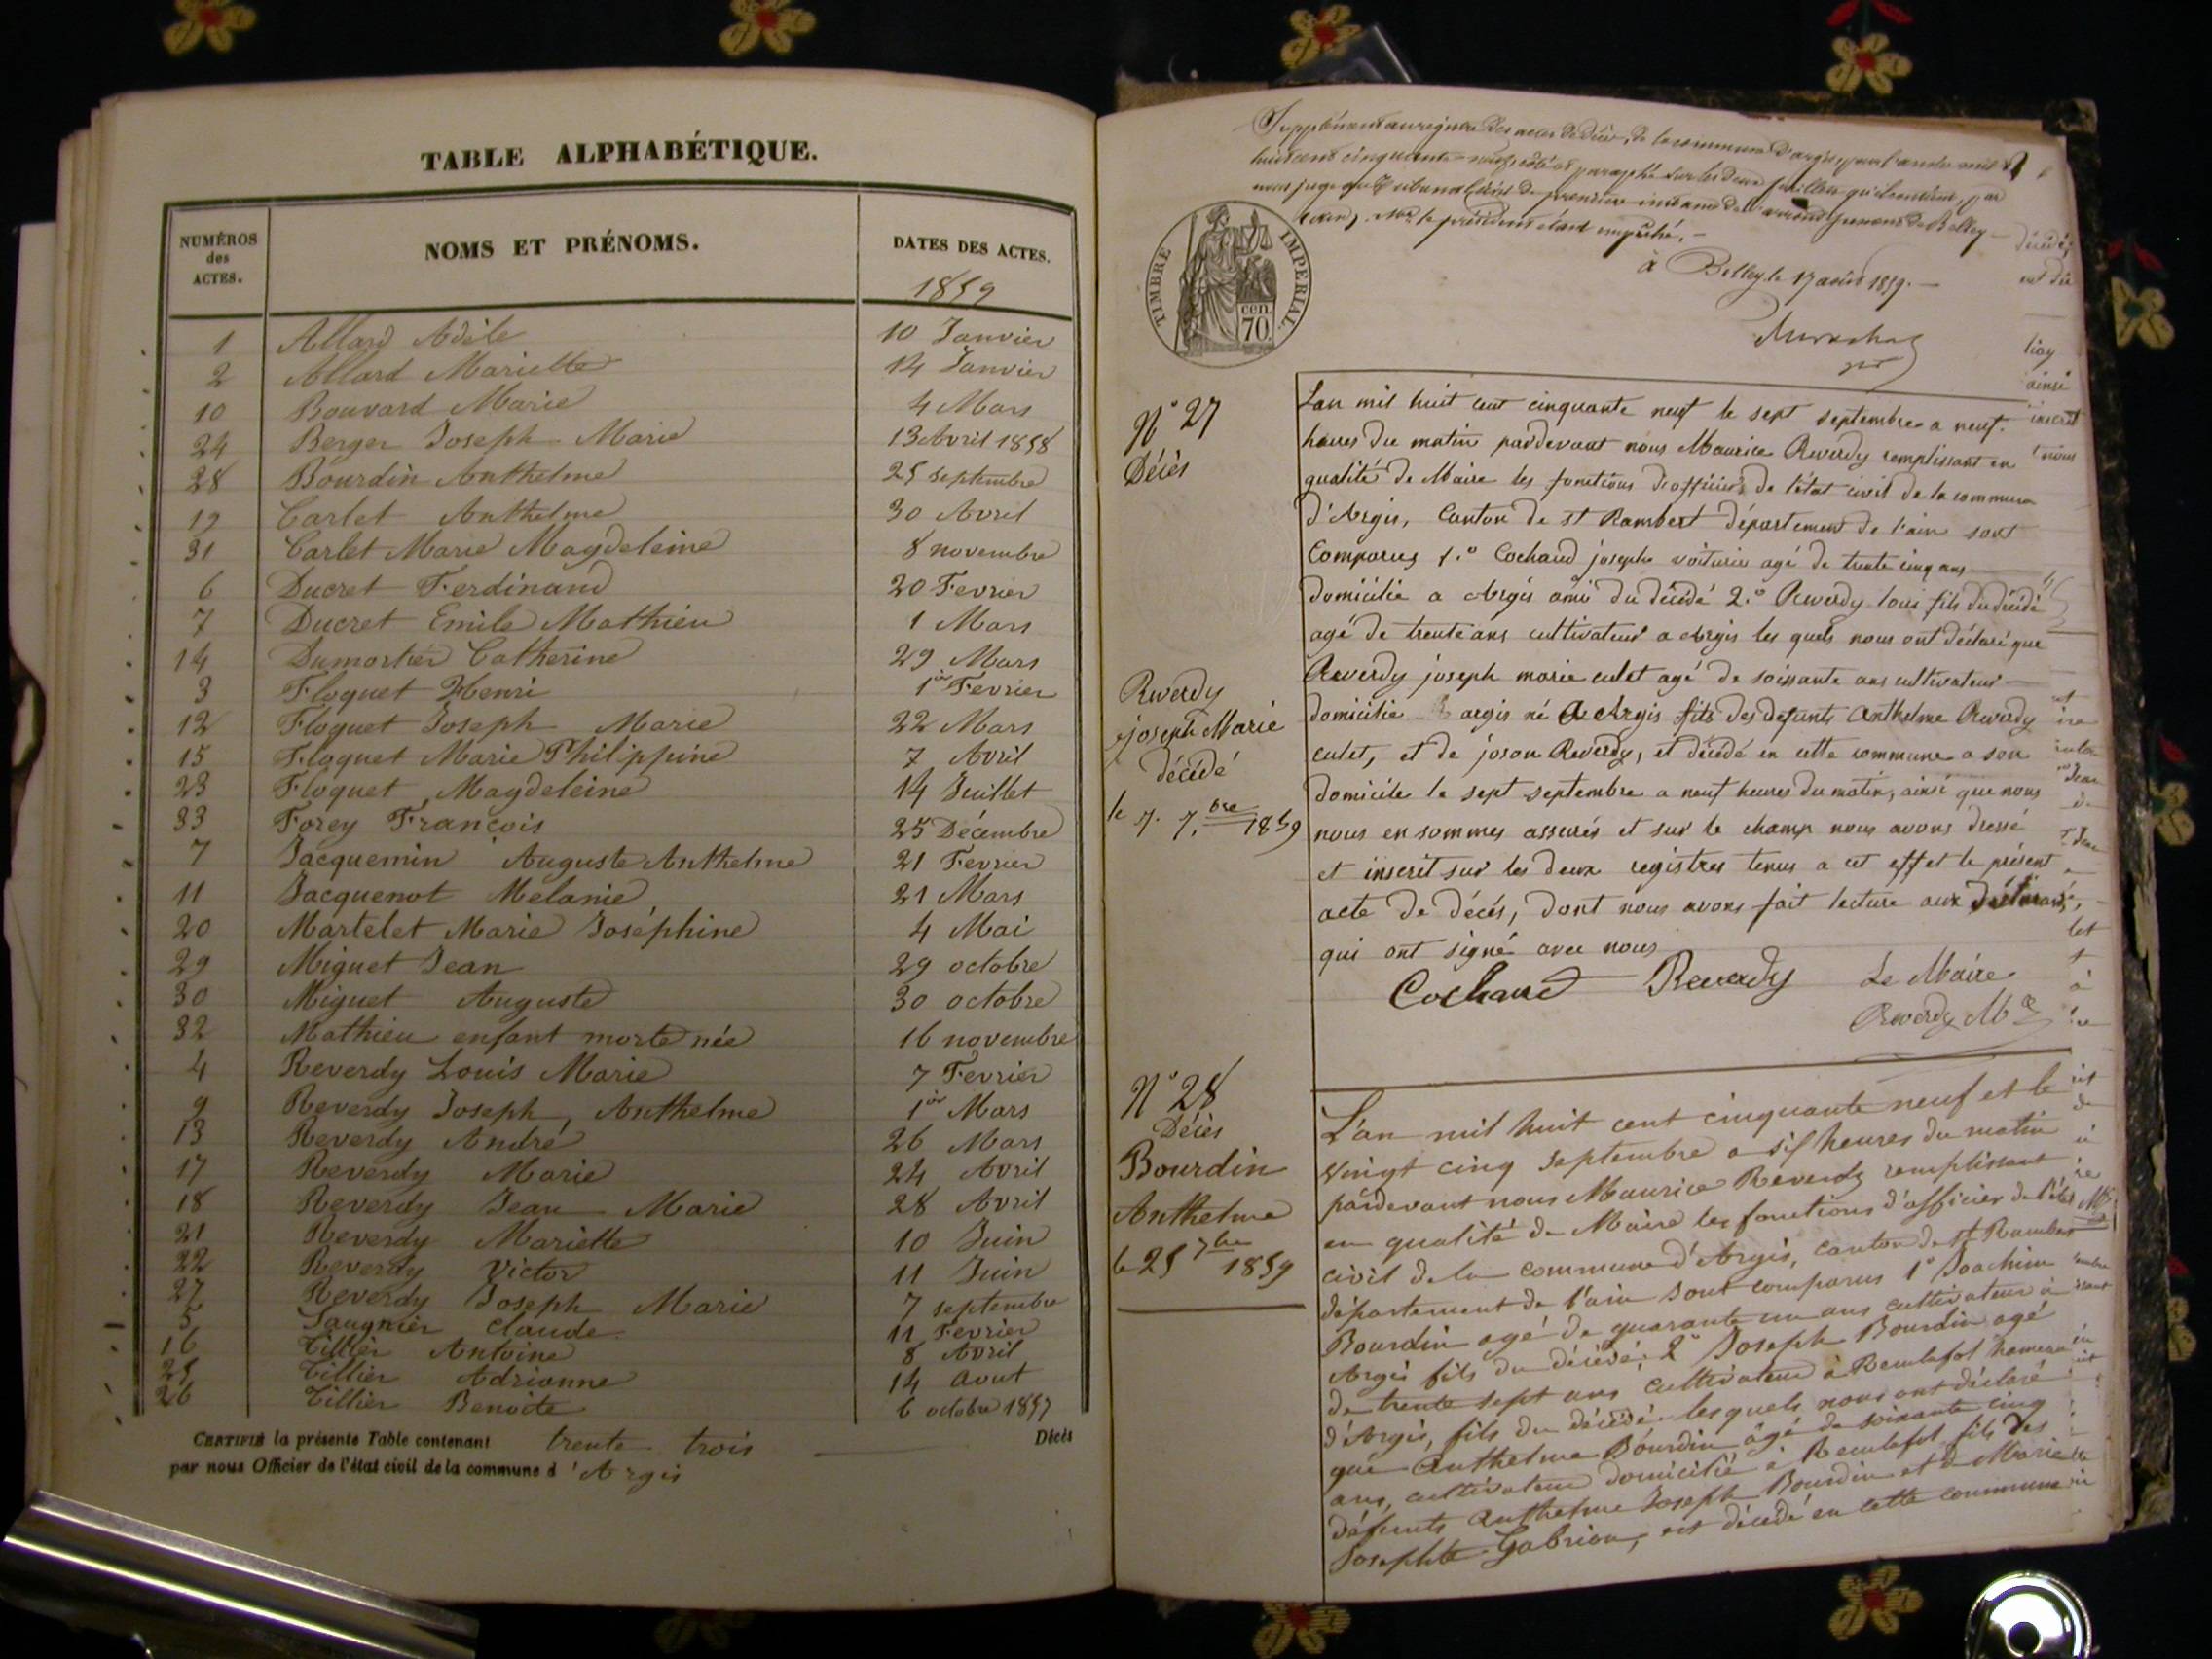 TABLE ALPHABÉTIQUE.
NUMÉROS des ACTES.
NOMS ET PRÉNOMS.
DATES DES ACTES.
1859
1 Allard Adèle 10 Janvier
2 Allard Mariette 14 Janvier
10 Bouvard Marie 4 Mars
24 Berger Joseph Marie 13 Avril 1858
28 Bourdin Anthelme 25 septembre
19 Carlet Anthelme 30 Avril
31 Carlet Marie Magdeleine 8 novembre
6 Ducret Ferdinand 20 Fevrier
7 Ducret Emile Mathieu 1 Mars
14 Dumortier Catherine 29 Mars
3 Floquet Henri 1er Fevrier
12 Floquet Joseph Marie 22 Mars
15 Floquet Marie Philippine 7 Avril
23 Floquet Magdeleine 14 Juillet
33 Forey François 25 Décembre
7 Jacquemin Auguste Anthelme 21 Fevrier
11 Jacquenot Melanie 21 Mars
20 Martelet Marie Joséphine 4 Mai
29 Miguet Jean 29 octobre
30 Miguet Auguste 30 octobre
32 Mathieu enfant morte née 16 novembre
4 Reverdy Louis Marie 7 Fevrier
9 Reverdy Joseph Anthelme 1er Mars
13 Reverdy André 26 Mars
17 Reverdy Marie 24 Avril
18 Reverdy Jean Marie 28 Avril
21 Reverdy Mariette 10 Juin
22 Reverdy Victor 11 Juin
27 Reverdy Joseph Marie 7 septembre
5 Claude 11 Fevrier
16 Tillier Antoine 8 Avril
25 Tillier Adrianne 14 Aout
26 Tillier Benoite 6 octobre 1857
CERTIFIÉ la présente Table contenant trente trois Décès
par nous Officier de l'état civil de la commune d'Argis
Supplément au registre des actes de décès, de la commune d'argis, pour l'année mil
huit cent cinquante neuf, coté et paraphé sur les deux feuilles qu'il contient, par
nous juge au Tribunal Civil de première instance de l'arrondissement de Belley
Mr le président étant empêché.
à Belley le 17 août 1859.
TIMBRE IMPERIAL.
cen. 70.
N° 27
Décès
Reverdy
joseph Marie
décédé
le 7. 7.bre 1859
L'an mil huit cent cinquante neuf le sept septembre a neuf
heures du matin pardevant nous Maurice Reverdy remplissant en
qualité de Maire les fonctions d'officier de l'état civil de la commune
d'Argis, Canton de st Rambert département de l'ain sont
Comparus 1.° Cochaud joseph voiturier agé de trente cinq ans
domicilié a Argis ami du décédé 2.° Reverdy louis fils du décédé
agé de trente ans cultivateur a Argis les quels nous ont déclaré que
Reverdy joseph marie culet agé de soixante ans cultivateur
domicilié a argis né a Argis fils des defunts Anthelme Reverdy
culet, et de Reverdy, et décédé en cette commune a son
domicile le sept septembre a neuf heures du matin, ainsi que nous
nous en sommes assurés et sur le champ nous avons dressé
et inscrit sur les deux registres tenus a cet effet le présent
acte de décés, dont nous avons fait lecture aux
qui ont signé avec nous
Cochaud Reverdy Le Maire
Reverdy Mce
N° 28
Décès
Bourdin
Anthelme
le 25 7bre 1859
L'an mil huit cent cinquante neuf et le
vingt cinq septembre a six heures du matin
pardevant nous Maurice Reverdy remplissant
en qualité de Maire les fonctions d'officier de l'état
civil de la commune d'Argis, canton de st Rambert
département de l'ain sont comparus 1° Joachim
Bourdin agé de quarante un ans cultivateur à
Argis fils du décédé; 2° Joseph Bourdin agé
de trente sept ans cultivateur à Reculafol hameau
d'Argis, fils du décédé. lesquels nous ont déclaré
que Anthelme Bourdin âgé de soixante cinq
ans, cultivateur domicilié a Reculafol fils des
défunts Anthelme Joseph Bourdin et de Marie
Josephte Gabrion, est décédé en cette commune